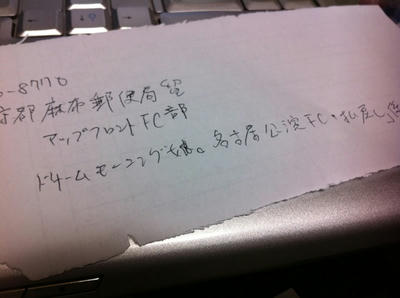 -8770
京都麻布郵便局留
アップフロントFC部
ドリームモーニング娘。名古屋公演FC・払戻し係